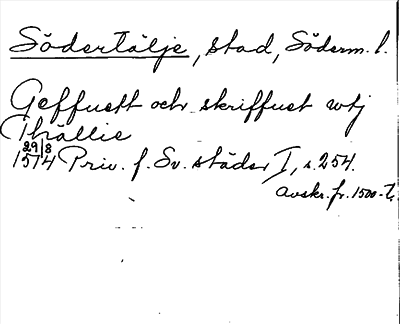 Södertälje, stad, Söderm. l.
Geffuett och skriffuet wtj
Thällie
29/8
1514 Priv. f. Sv. städer I, s. 254.
avskr. fr. 1500-t.